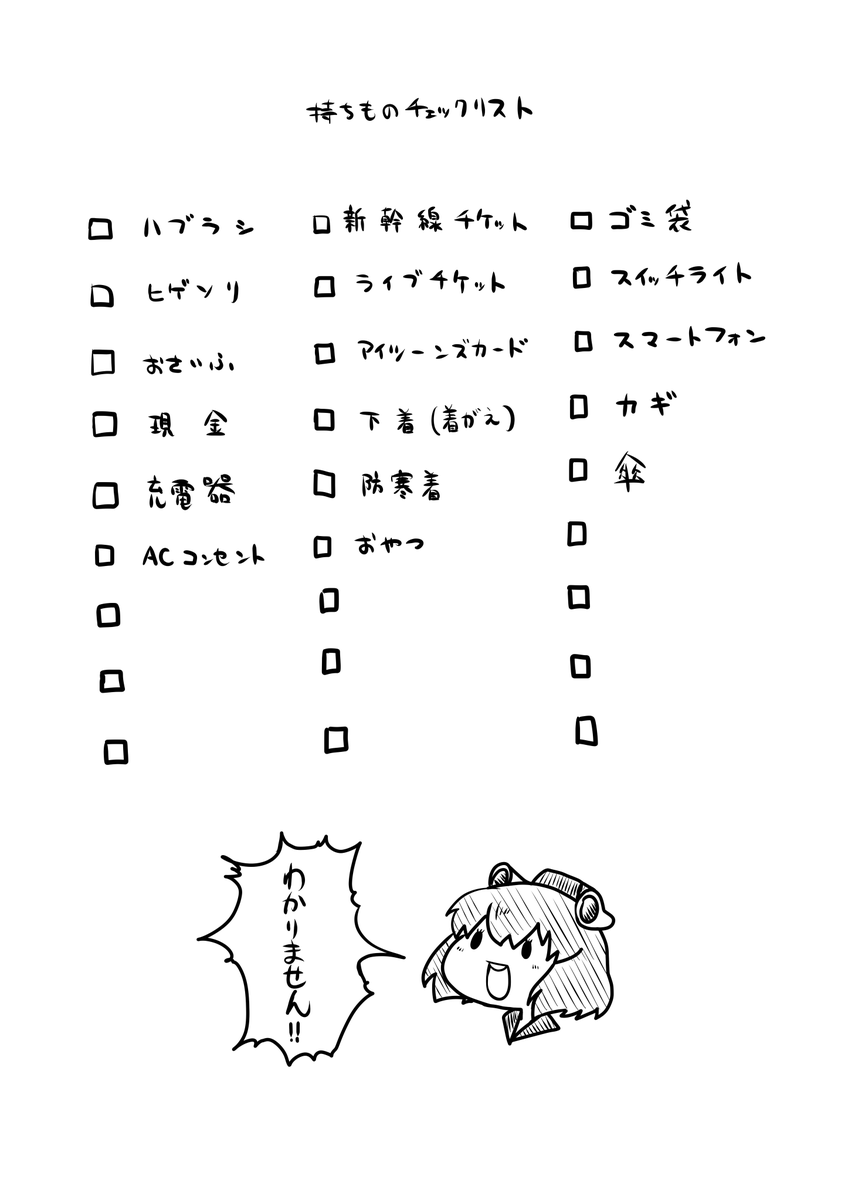 持ちものチェックリスト
ハブラシ
ヒゲソリ
おさいふ
現金
充電器
ACコンセント
新幹線チケット
ライブチケット
アイツーンズカード
下着(着がえ)
防寒着
おやつ
ゴミ袋
スイッチライト
スマートフォン
カギ
傘
わかりません!!